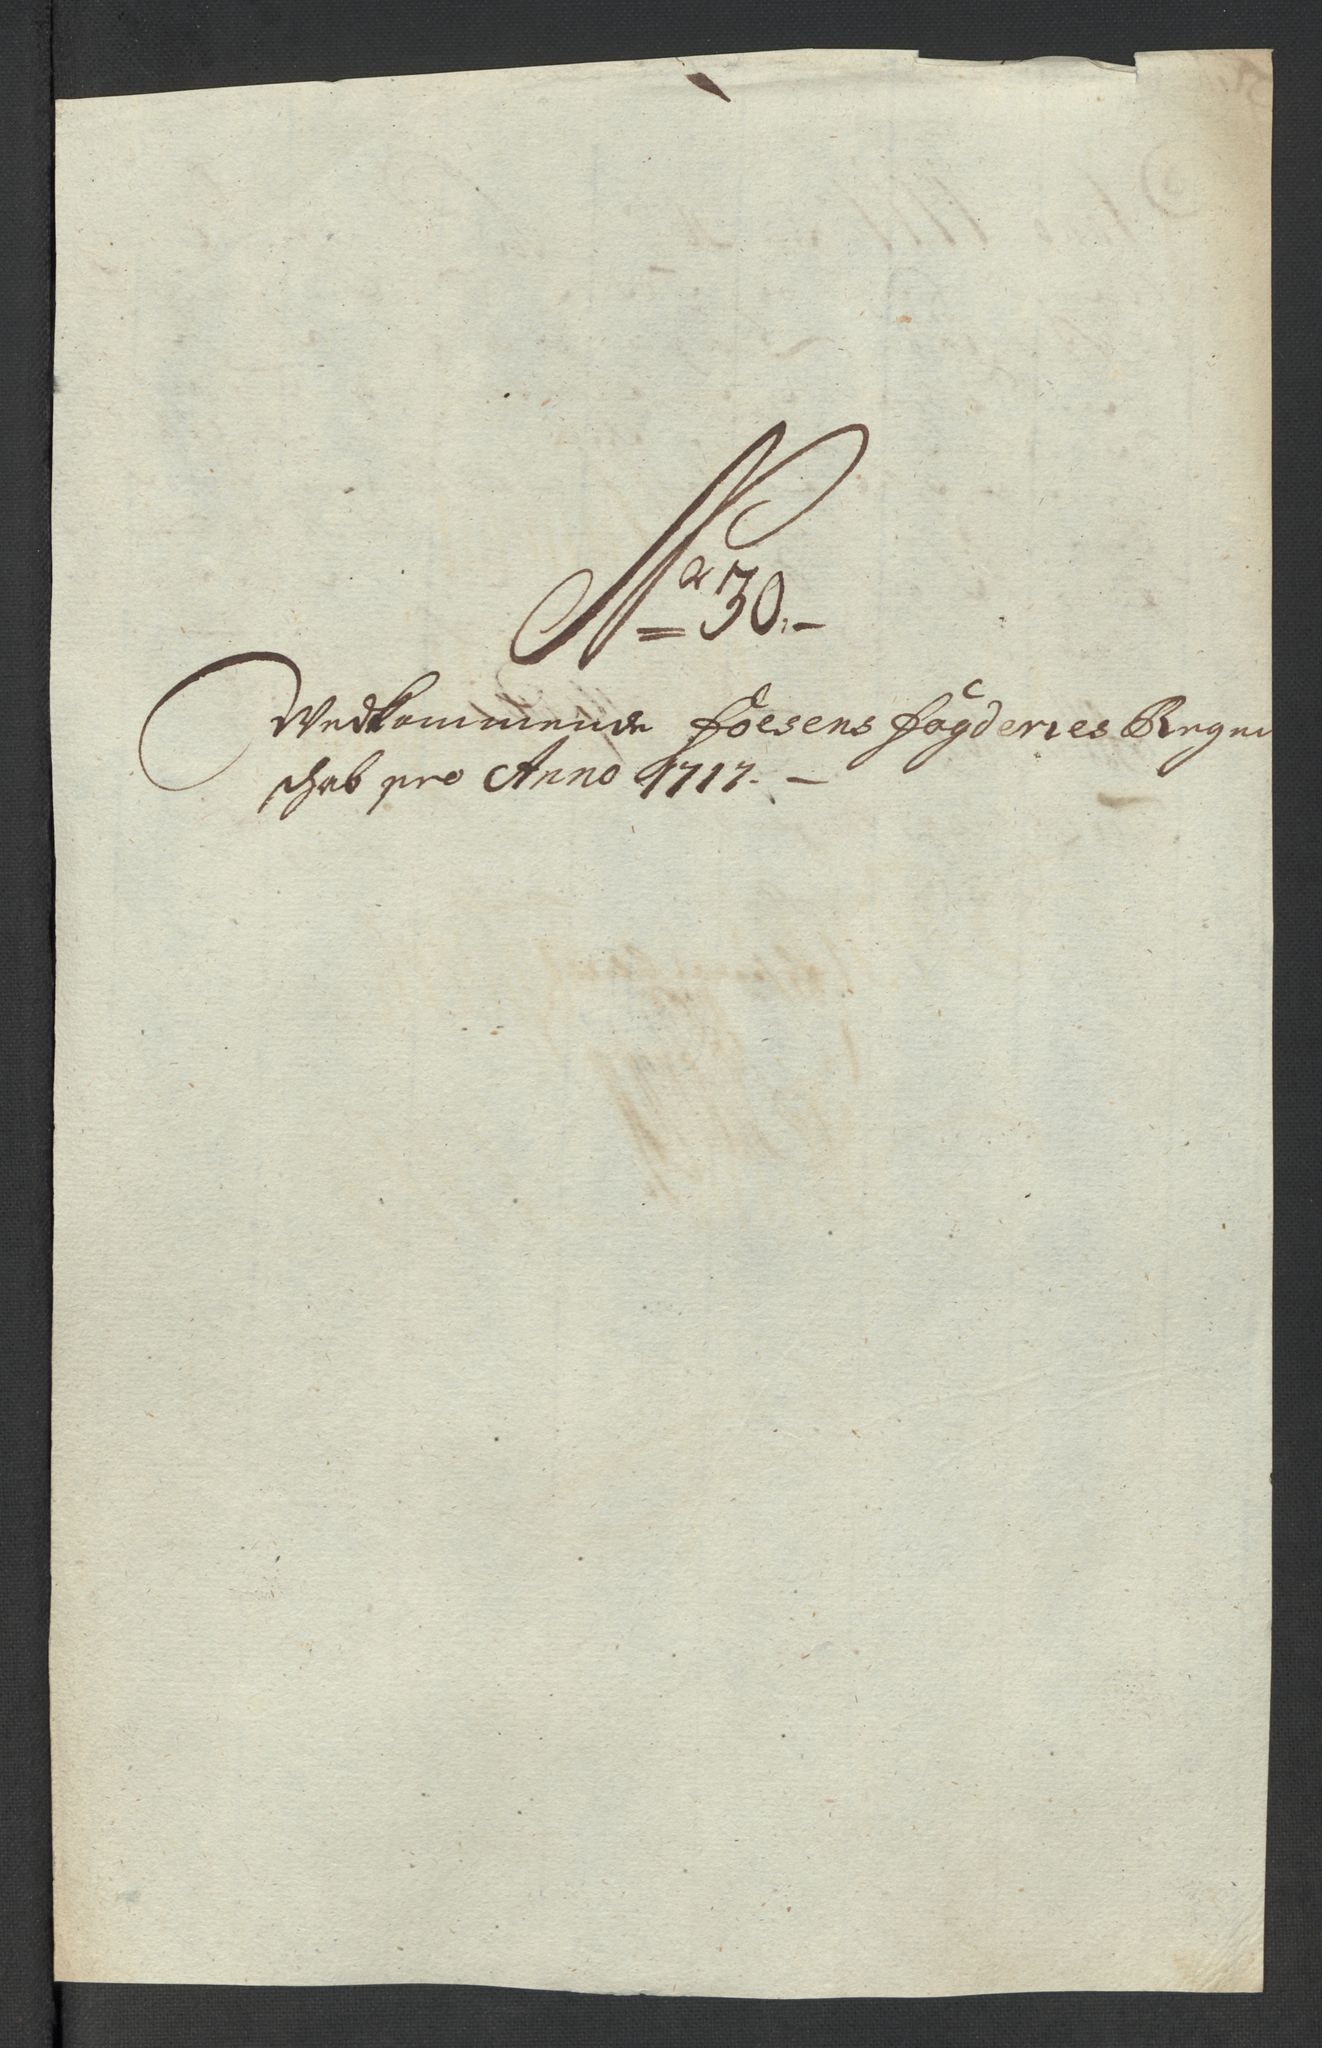 No 30.
Wedkommende Foesens Fogderies Regen
schab pro Anno 1717.